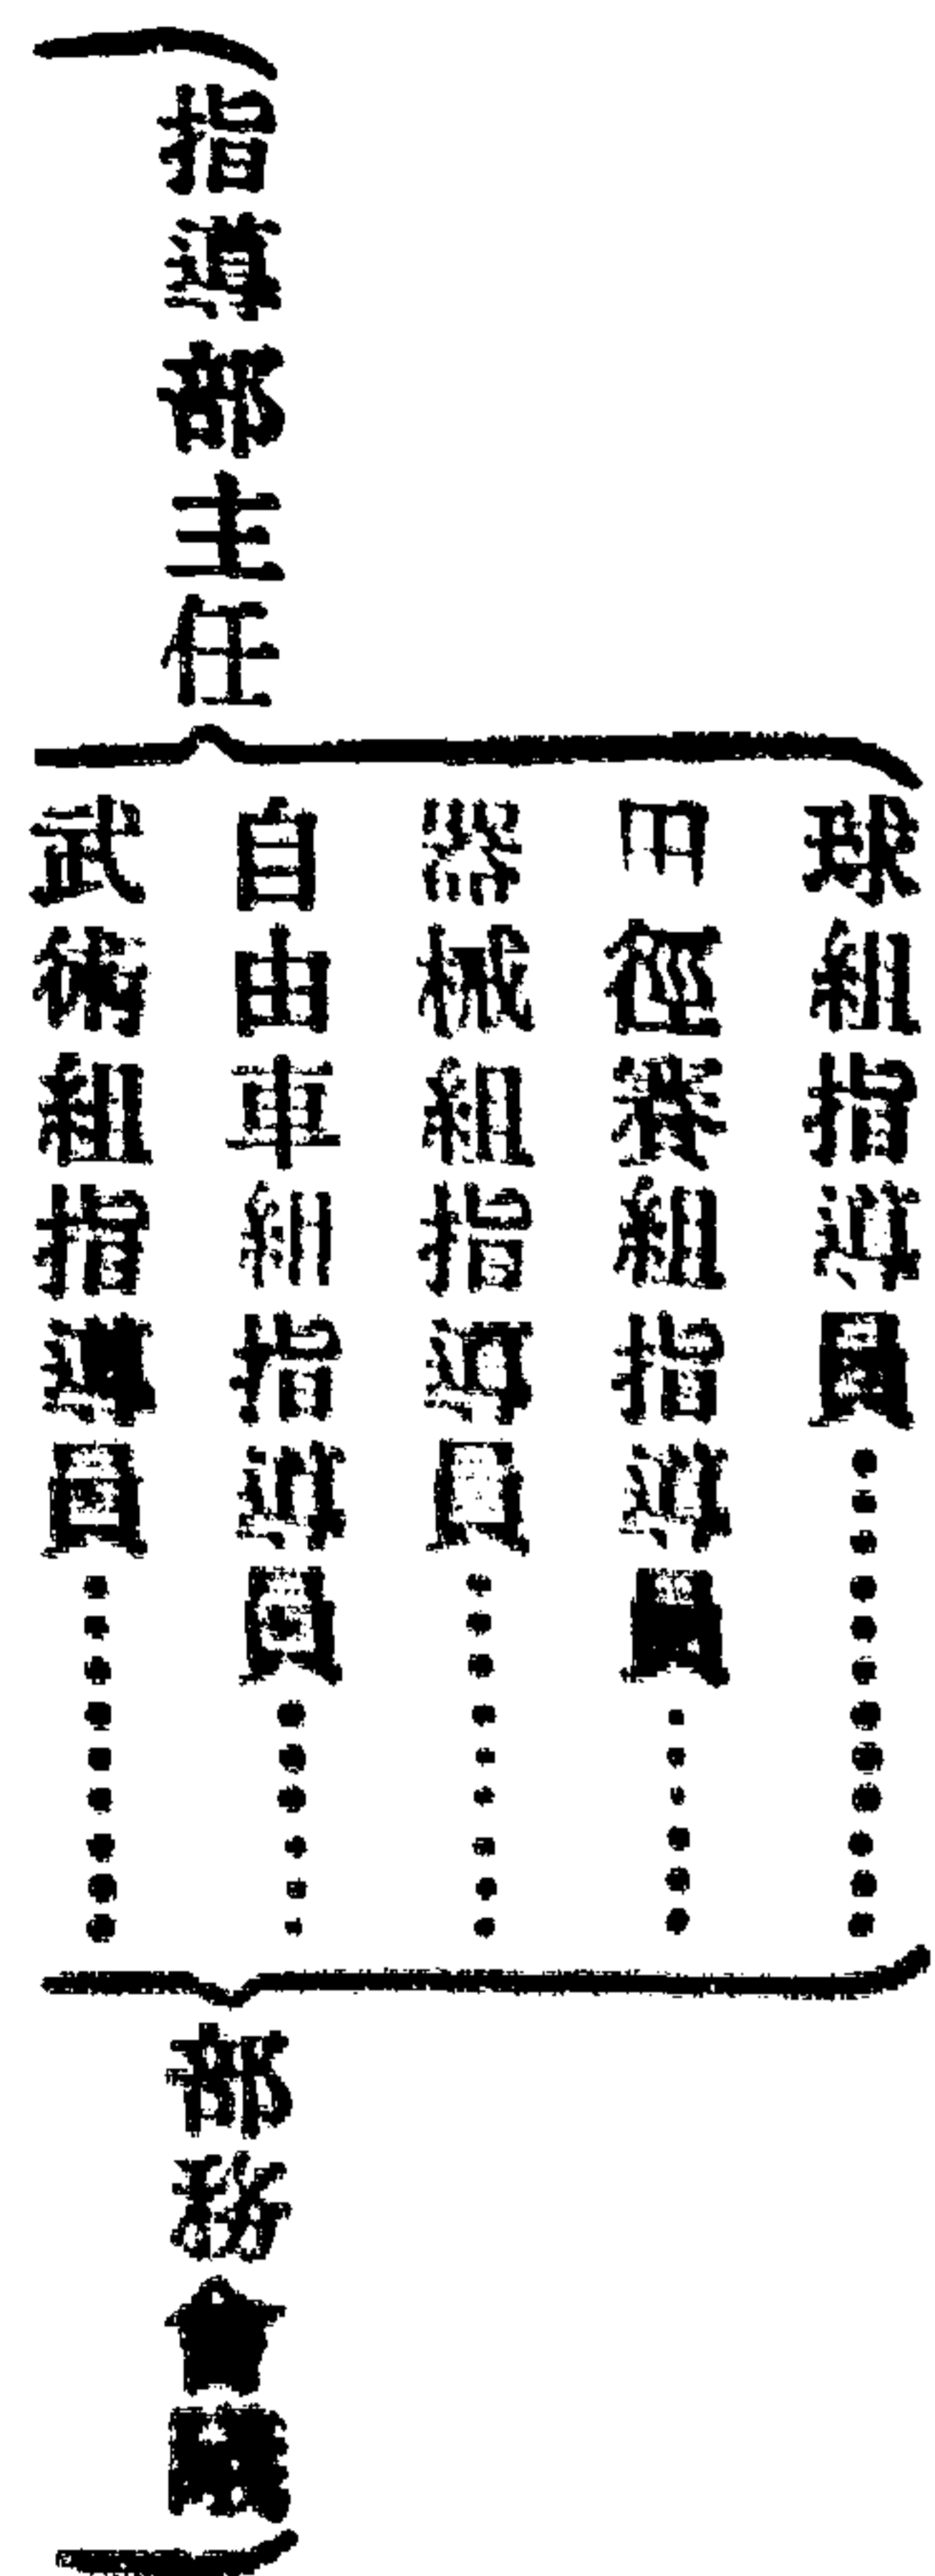 指導部主任
球組指導員
田徑賽組指導員
器械組指導員
自由車組指導員
武術組指導員
部務會議